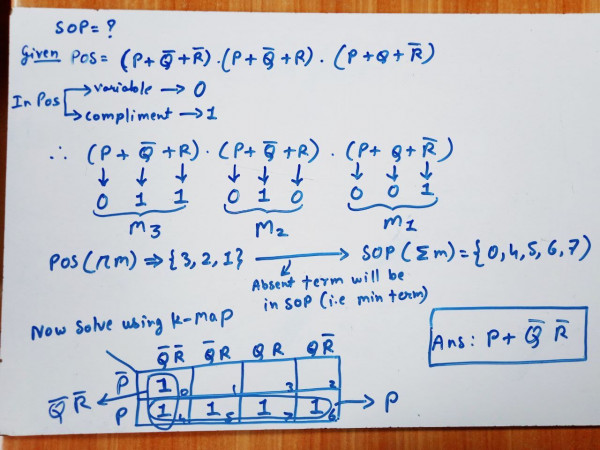 SOP = ?
Given POS = (P+Q̅+R̅).(P+Q̅+R).(P+Q+R̅)
In Pos → variable → 0
→ compliment → 1
∴ (P+Q̅+R).(P+Q̅+R).(P+Q+R̅)
0 1 1 0 1 0 0 0 1
M3 M2 M1
POS(πm) ⇒ {3,2,1} → SOP(Σm) = {0,4,5,6,7)
Absent term will be
in SOP (i.e min term)
Now solve using K-map
Ans: P + Q̅ R̅
Q̅ R̅ Q̅ R Q R Q R̅
P̅ 1 0 1 3 2
Q̅ R̅ P 1 4 1 5 1 7 1 6 → P